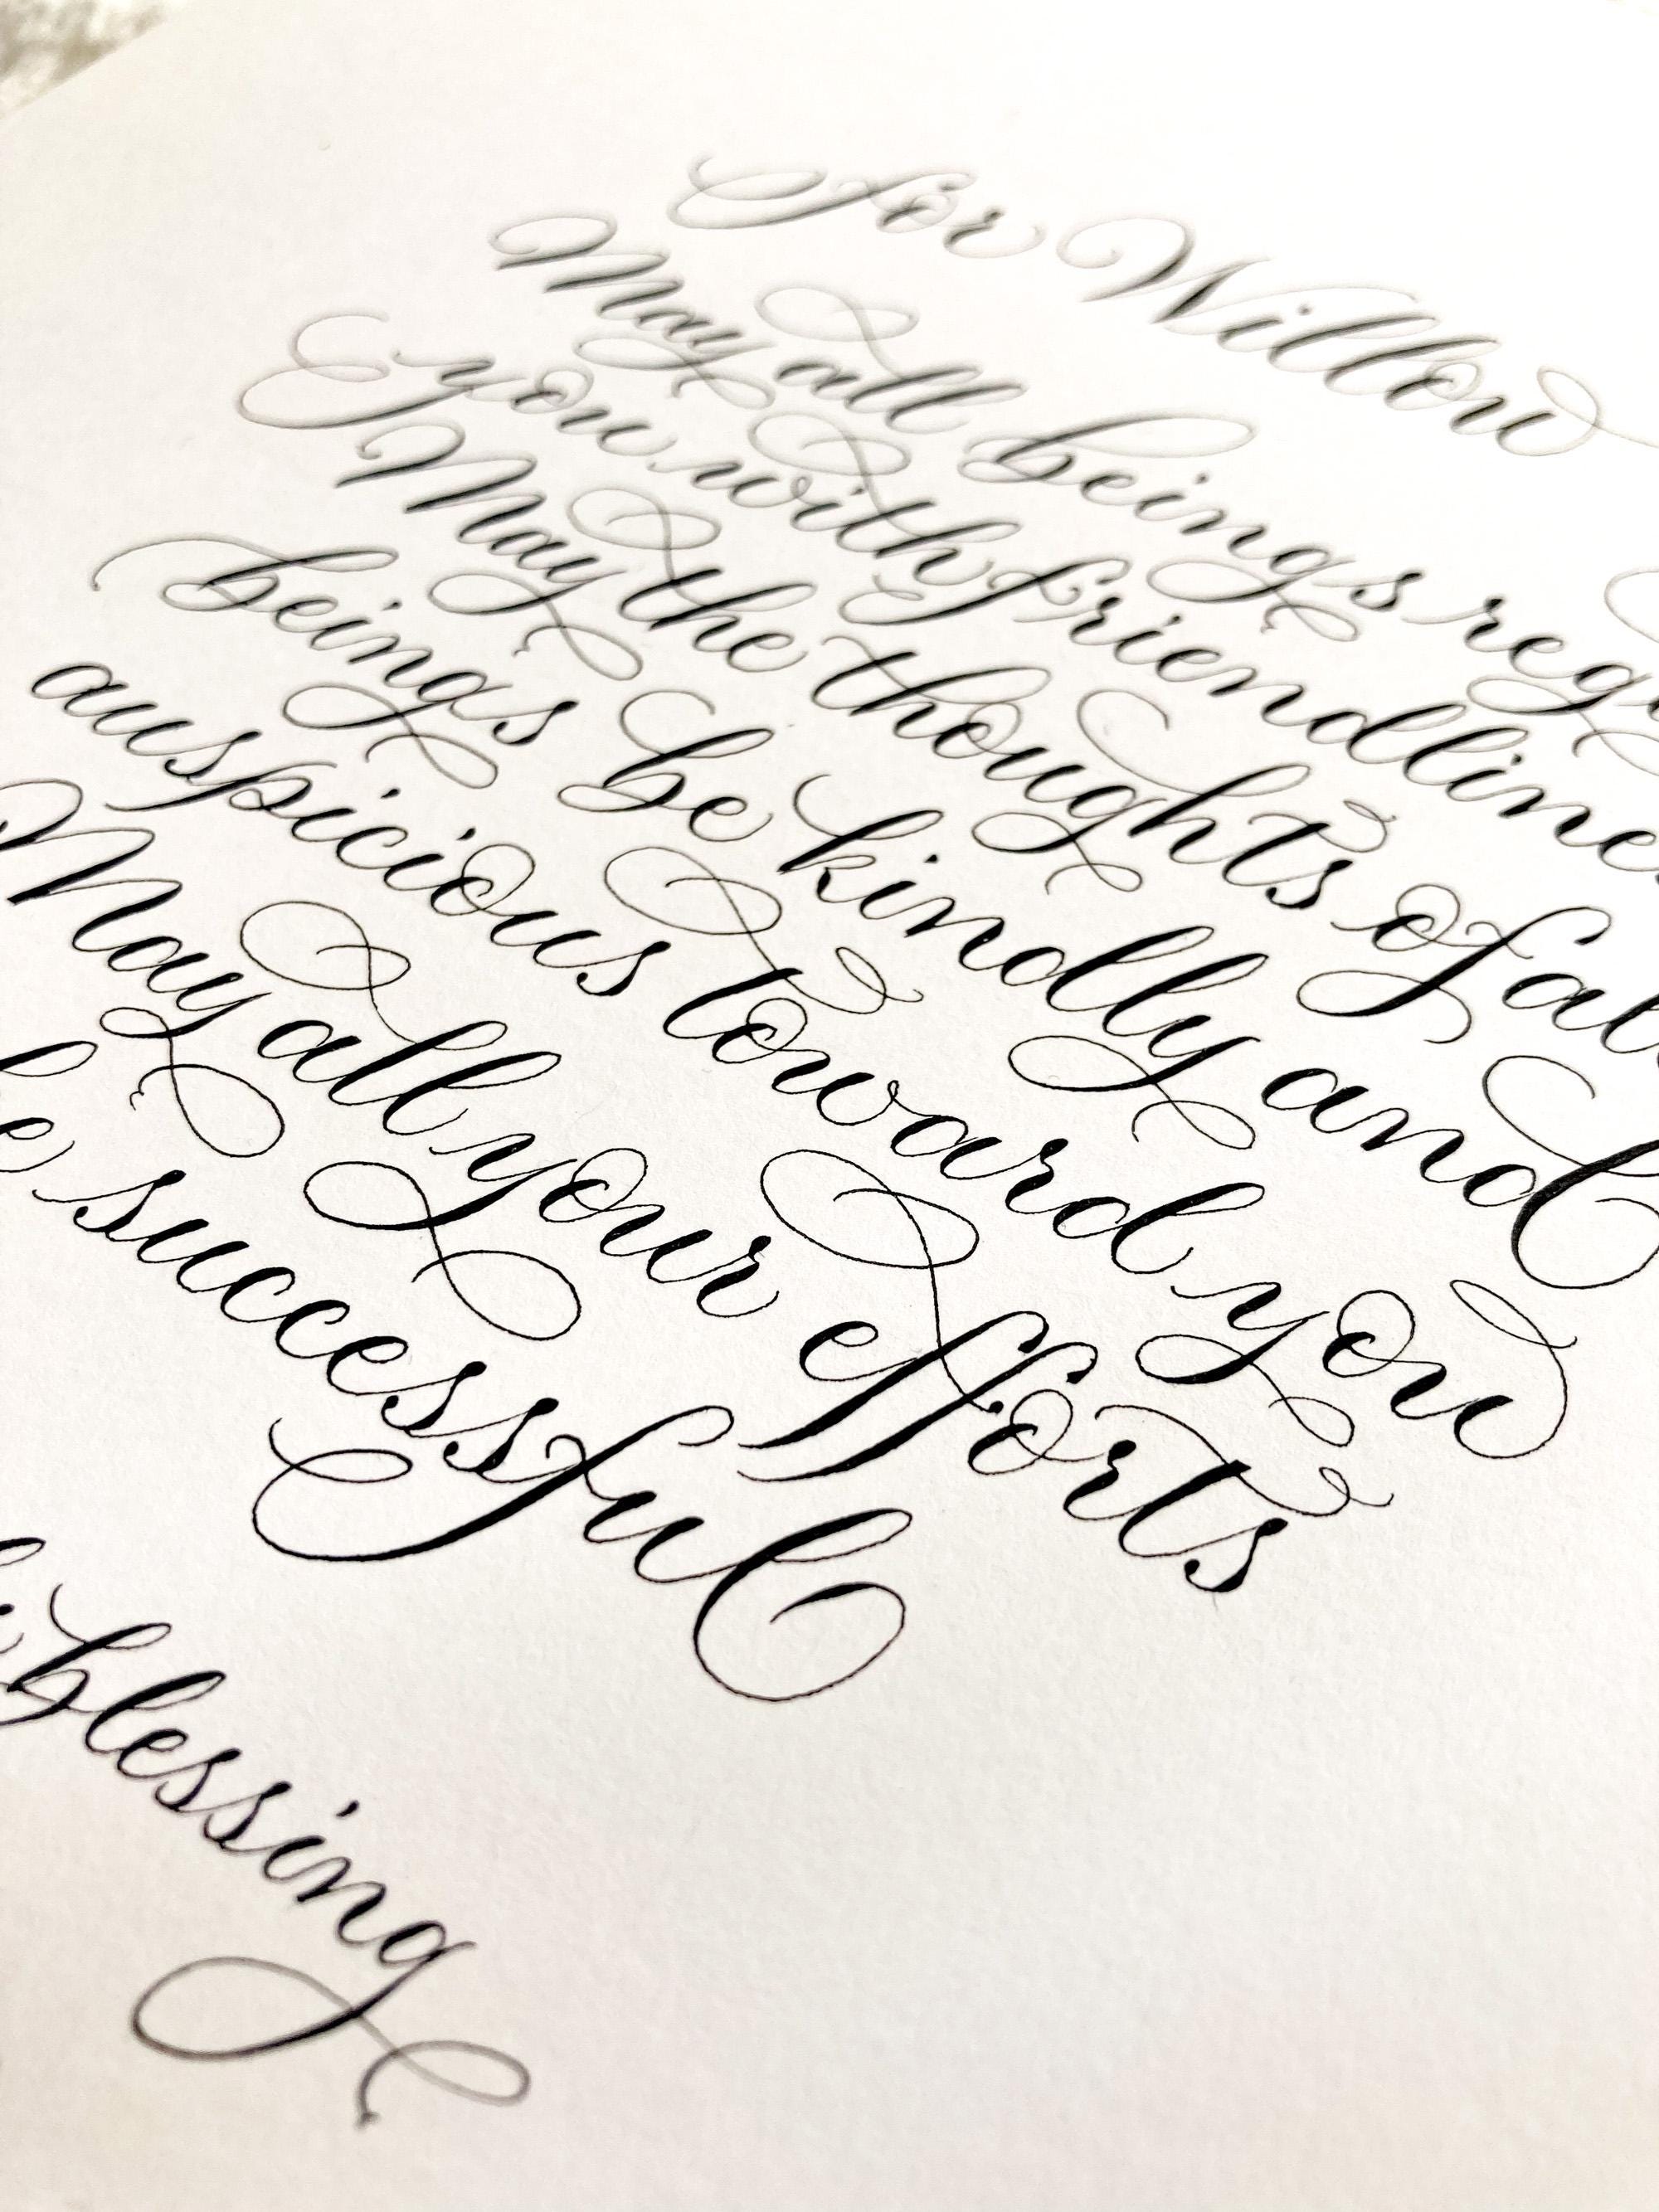 for Willow
May all beings reg
you with friendlines
May the thoughts of all
beings be kindly and
auspicious toward you
May all your efforts
be successful
blessing